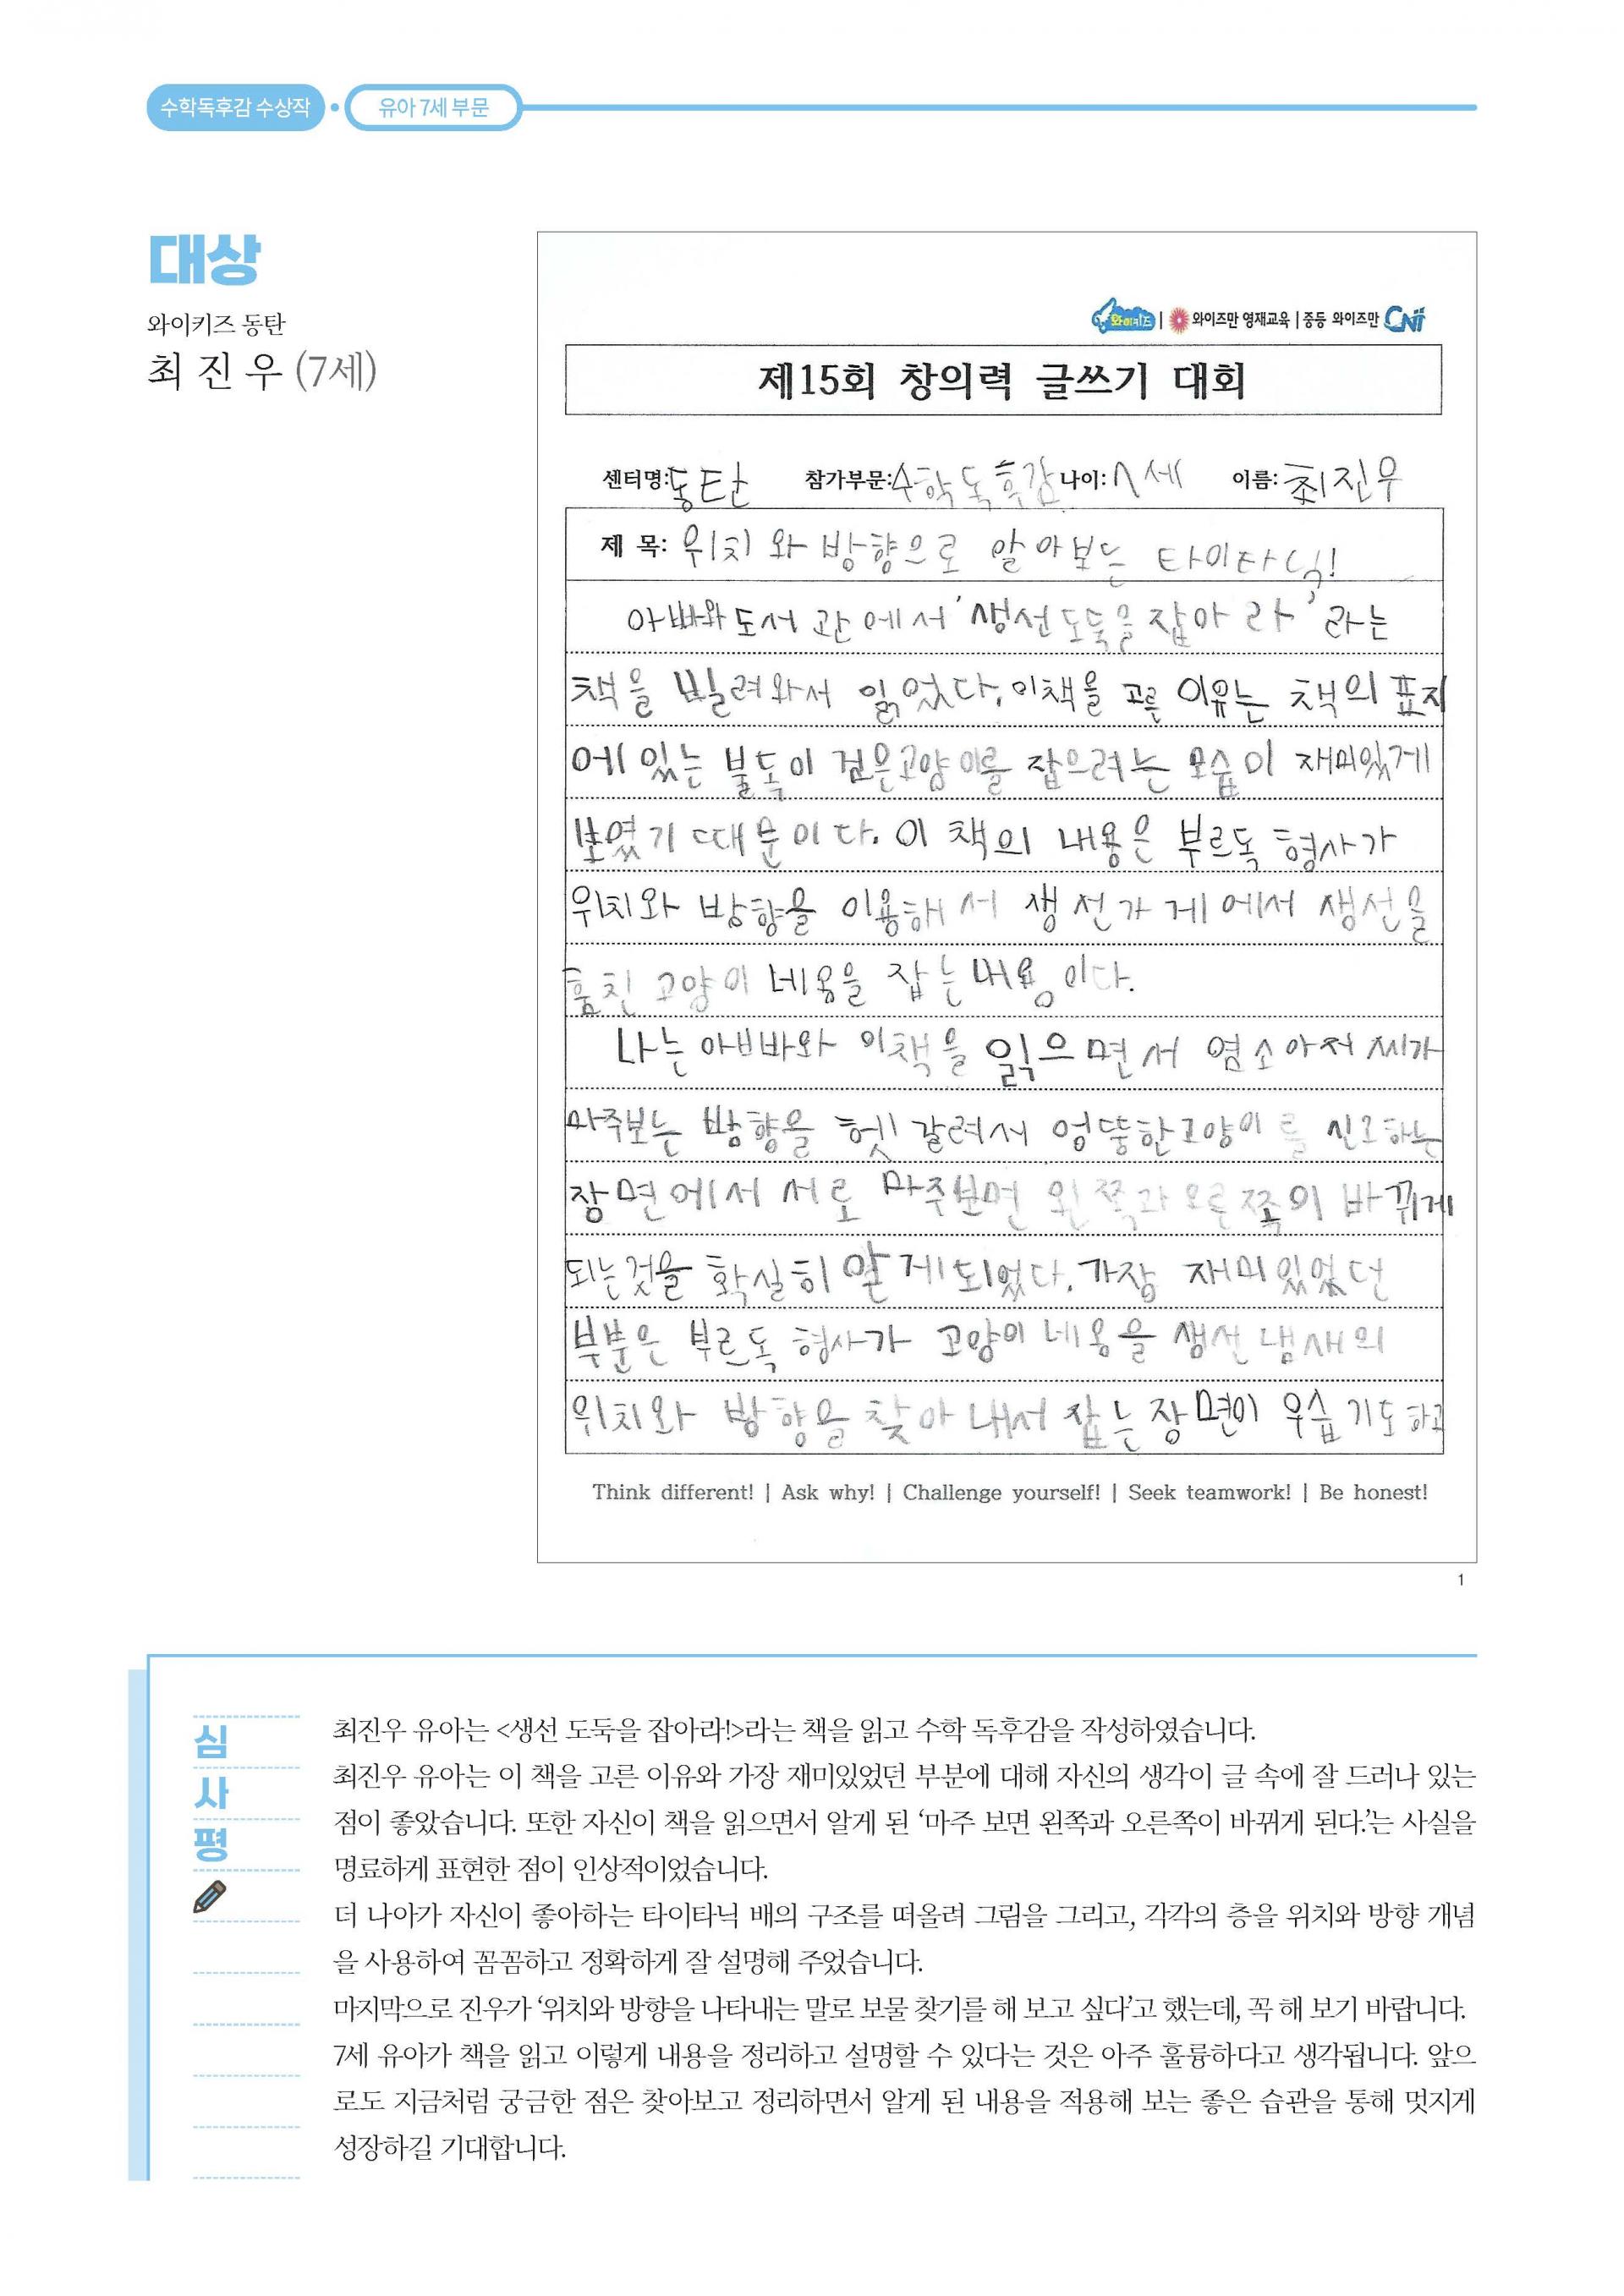 수학독후감 수상작 • 유아 7세 부문
대상
와이키즈 동탄
최 진 우 (7세)
와이키즈 | 와이즈만 영재교육 | 중등 와이즈만 CNI
제15회 창의력 글쓰기 대회
센터명: 동탄 참가부문: 수학독후감 나이: 7세 이름: 최진우
제 목: 위치와 방향으로 알아보는 타이타닉!
아빠와 도서관에서 '생선도둑을 잡아라' 라는
책을 빌려와서 읽었다. 이책을 고른 이유는 책의 표지
에 있는 불독이 검은고양이를 잡으려는 모습이 재미있게
보였기 때문이다. 이 책의 내용은 부르독 형사가
위치와 방향을 이용해서 생선가게에서 생선을
훔친 고양이 네옹을 잡는 내용이다.
나는 아빠와 이책을 읽으면서 염소아저씨가
마주보는 방향을 헷갈려서 엉뚱한 고양이를 신고하는
장면에서 서로 마주보면 왼쪽과 오른쪽의 바뀌게
되는것을 확실히 알게되었다. 가장 재미있었던
부분은 부르독 형사가 고양이 네옹을 생선냄새의
위치와 방향을 찾아내서 잡는장면이 우습기도하고
Think different! | Ask why! | Challenge yourself! | Seek teamwork! | Be honest!
1
심
사
평
최진우 유아는 <생선 도둑을 잡아라!>라는 책을 읽고 수학 독후감을 작성하였습니다.
최진우 유아는 이 책을 고른 이유와 가장 재미있었던 부분에 대해 자신의 생각이 글 속에 잘 드러나 있는
점이 좋았습니다. 또한 자신이 책을 읽으면서 알게 된 '마주 보면 왼쪽과 오른쪽이 바뀌게 된다.'는 사실을
명료하게 표현한 점이 인상적이었습니다.
더 나아가 자신이 좋아하는 타이타닉 배의 구조를 떠올려 그림을 그리고, 각각의 층을 위치와 방향 개념
을 사용하여 꼼꼼하고 정확하게 잘 설명해 주었습니다.
마지막으로 진우가 '위치와 방향을 나타내는 말로 보물 찾기를 해 보고 싶다'고 했는데, 꼭 해 보기 바랍니다.
7세 유아가 책을 읽고 이렇게 내용을 정리하고 설명할 수 있다는 것은 아주 훌륭하다고 생각됩니다. 앞으
로도 지금처럼 궁금한 점은 찾아보고 정리하면서 알게 된 내용을 적용해 보는 좋은 습관을 통해 멋지게
성장하길 기대합니다.